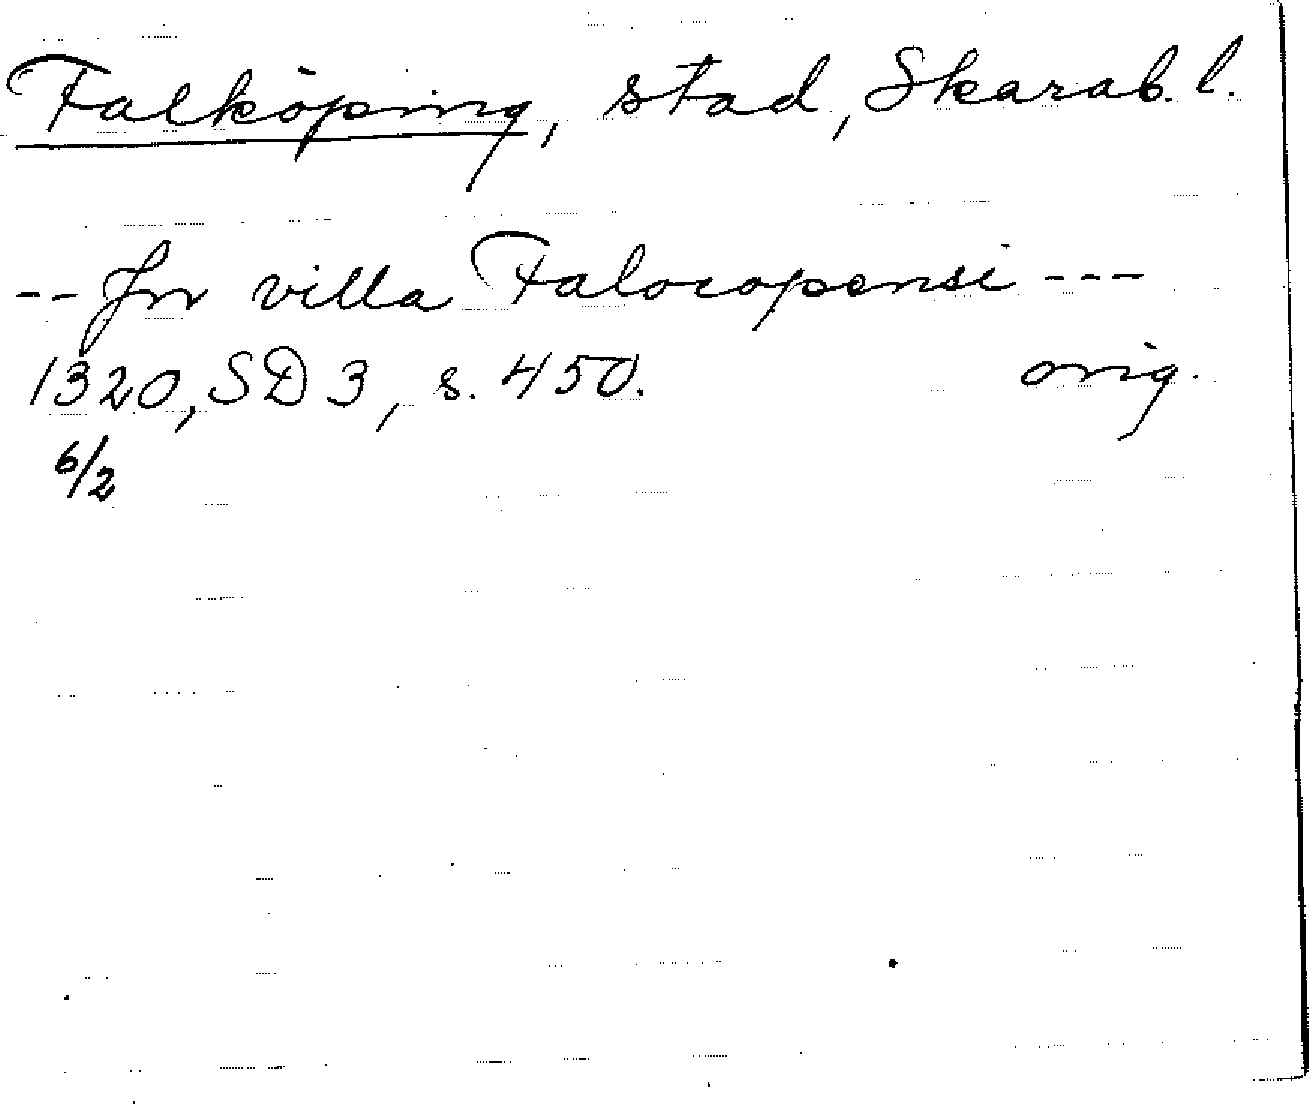 Falköping, stad, Skarab. l.
-- Jn villa Falocopensi ---
1320, SD 3, s. 450. orig.
6/2